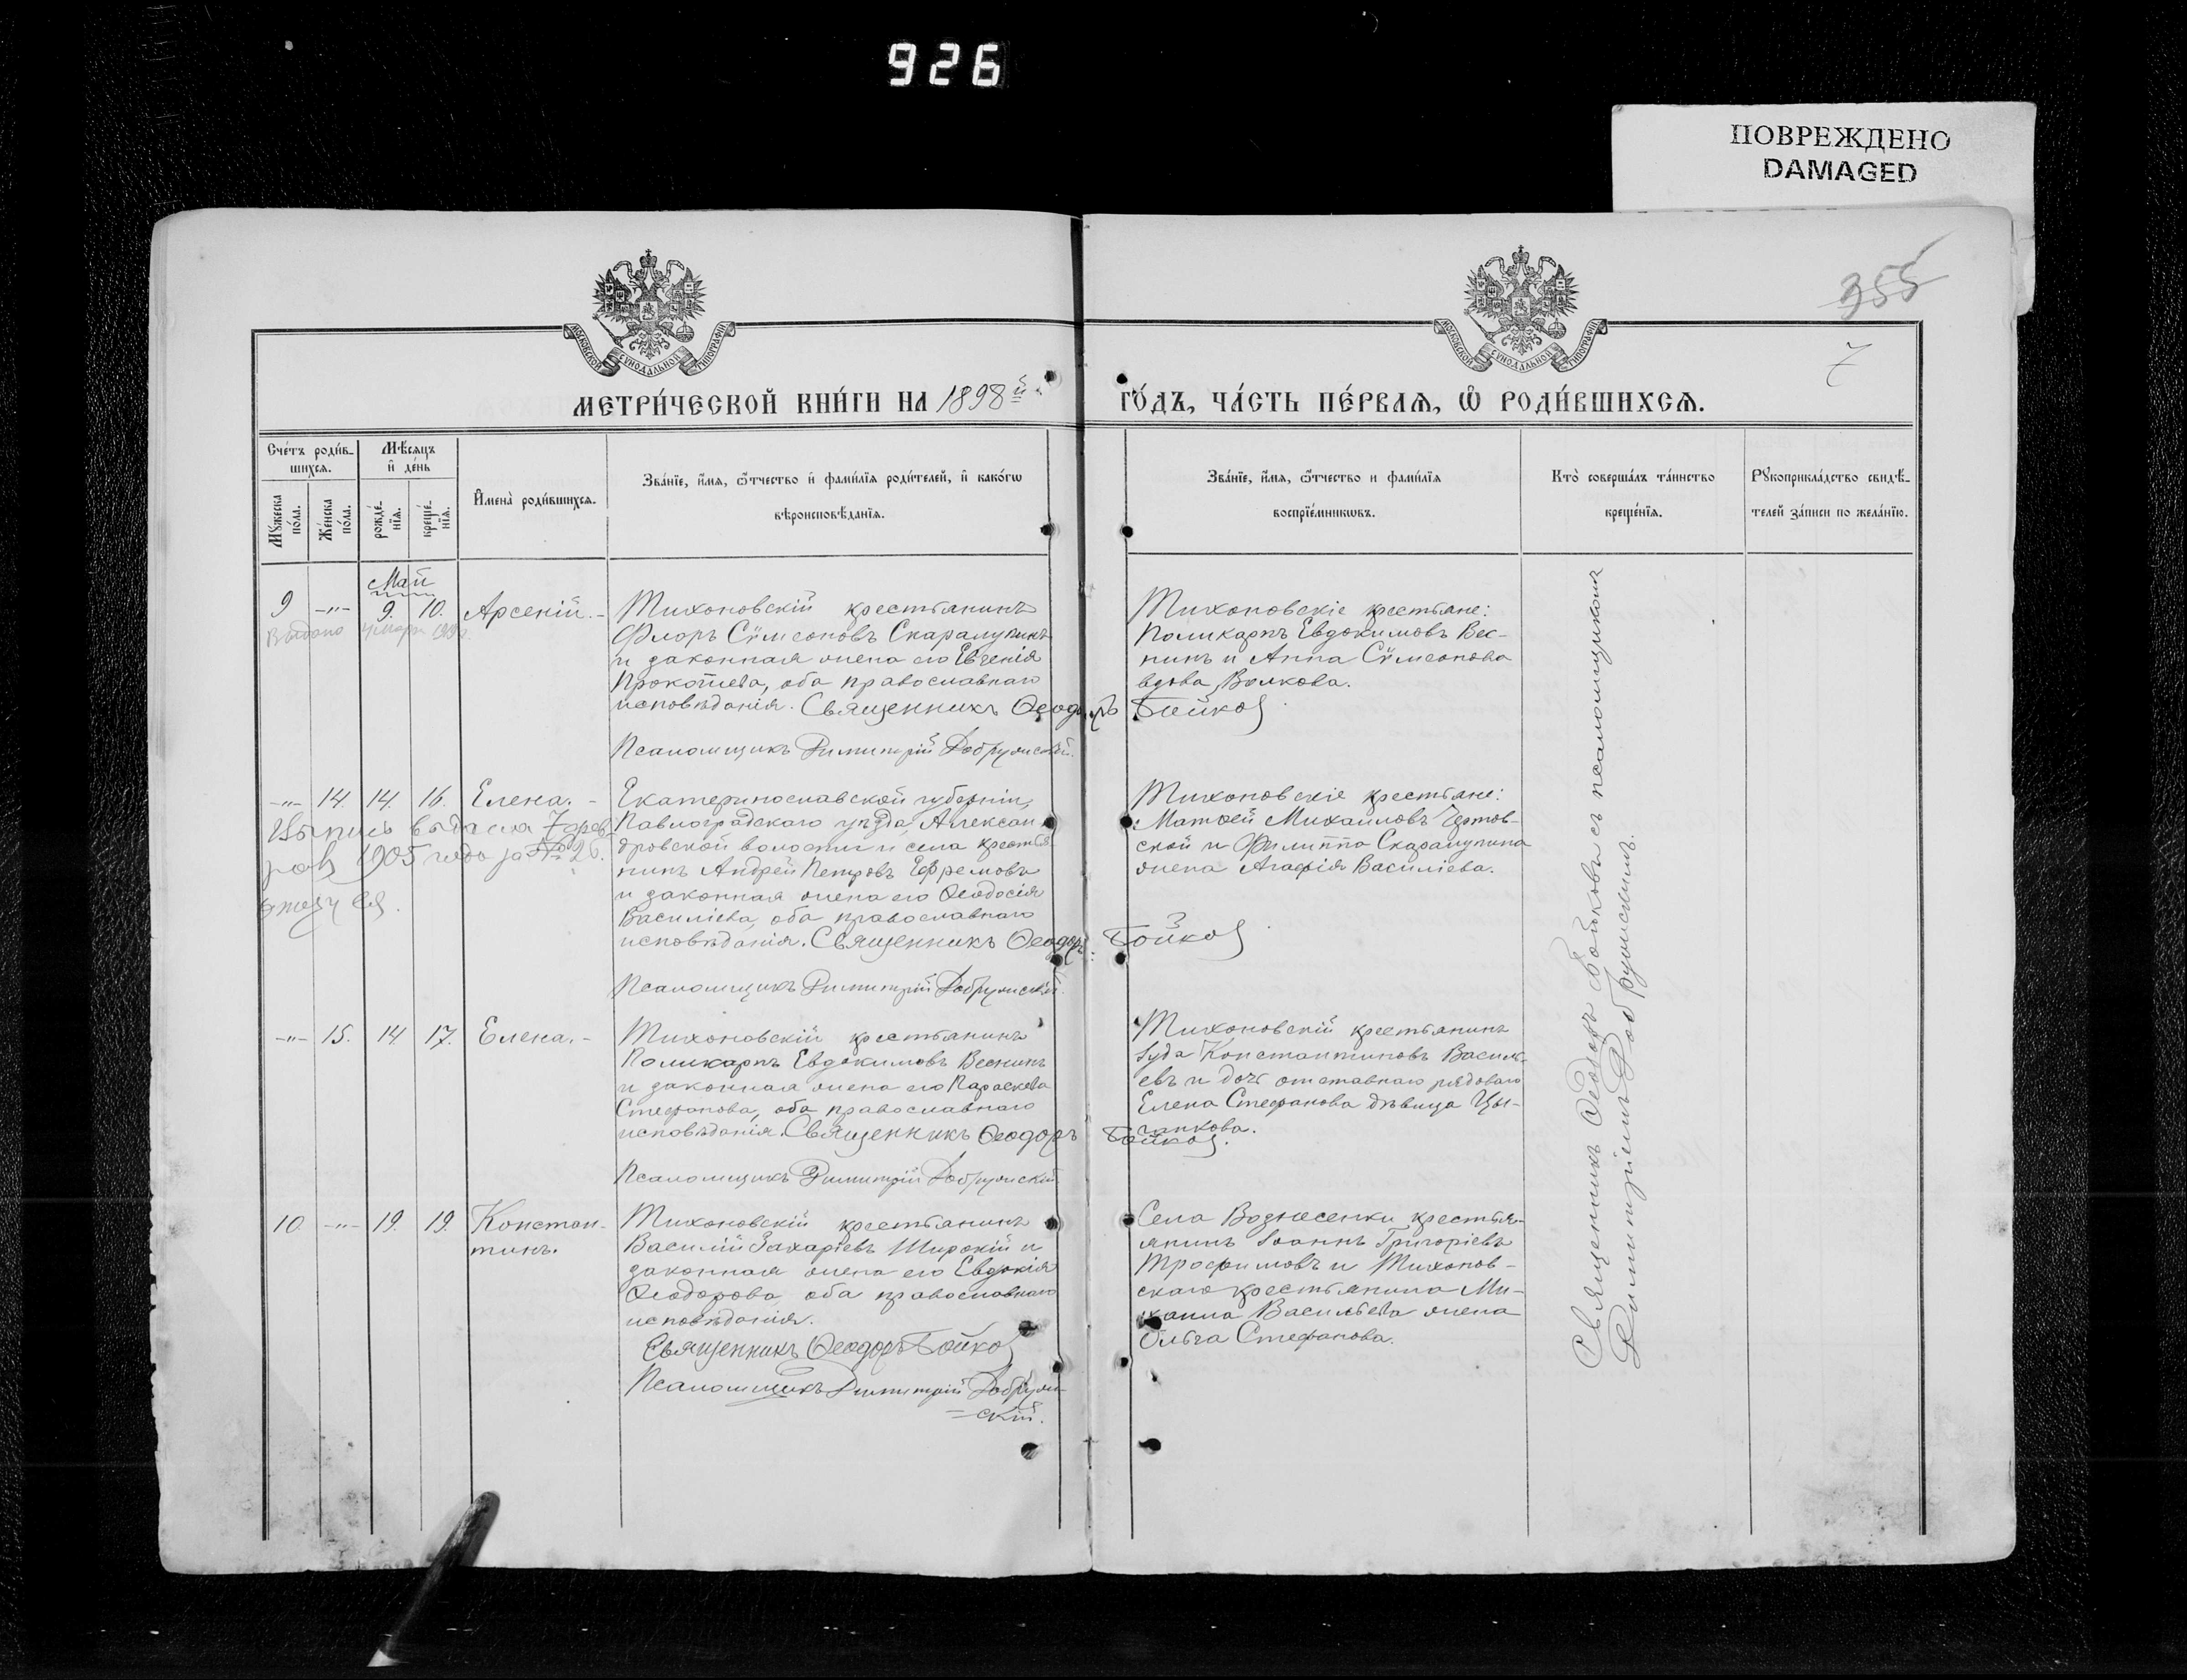 926
ПОВРЕЖДЕНО
DAMAGED
355
7
МОСКОВСКОЙ СѴНОДАЛЬНОЙ ТИПОГРАФІИ
МОСКОВСКОЙ СѴНОДАЛЬНОЙ ТИПОГРАФІИ
МЕТРИ́ЧЕСКОЙ КНИ́ГИ НА 1898й
ГО́ДЪ, ЧА́СТЬ ПЕ́РВАѦ, Ѽ РОДИ́ВШИХСѦ.
Сче́тъ роди́в-
шихсѧ.
Мѣ́сѧцъ
и҆ де́нь
Мꙋ́жеска
по́ла.
Же́нска
по́ла.
рожде́-
нїѧ.
креще́-
нїѧ.
И҆мена̀ роди́вшихсѧ.
Зва́нїе, и҆́мѧ, ѻ҆́тчество и҆ фами́лїѧ роди́телей, и҆ како́гѡ
вѣроисповѣ́данїѧ.
Зва́нїе, и҆́мѧ, ѻ҆́тчество и фами́лїѧ
воспрїе́мникѡвъ.
Кто̀ соверша́лъ та́инство
креще́нїѧ.
Рꙋкоприкла́дство свидѣ́-
телей за́писи по жела́нїю.
Май
9 -"- 9. 10. Арсеній. -
Выдано
Тихоновскій крестьянинъ
Флоръ Сѵмеоновъ Скарамупинъ
и законная жена его Евгенія
Прокопіева, оба православнаго
исповѣданія. Священникъ Ѳеодоръ Бойко
Псаломщикъ Димитрій Добружскій.
Тихоновскіе крестьяне:
Поликарпъ Евдокимовъ Вес-
нинъ и Анна Сѵмеонова
вдова Волкова.
-"- 14 14. 16. Елена. -
выдана
1905 года за № 26.
Екатеринославской губерніи,
Павлоградскаго уѣзда, Алексан-
дровской волости и села крестья
нинъ Андрей Петровъ Ефремовъ
и законная жена его Ѳеодосія
Василіева, оба православнаго
исповѣданія. Священникъ Ѳеодоръ Бойко
Псаломщикъ Димитрій Добружскій.
Тихоновскіе крестьяне:
Матѳей Михаиловъ Чертов-
ской и Филиппа Скарамупина
жена Агафія Василіева.
-"- 15. 14 17. Елена. -
Тихоновскій крестьянинъ
Поликарпъ Евдокимовъ Веснинъ
и законная жена его Параскева
Стефанова, оба православнаго
исповѣданія. Священникъ Ѳеодоръ Бойко.
Псаломщикъ Димитрій Добружскій
Тихоновскій крестьянинъ
Іуда Константиновъ Василь-
евъ и дочь отставнаго рядоваго
Елена Стефанова дѣвица Цы-
ганкова.
10. -"- 19. 19. Констан-
тинъ.
Тихоновскій крестьянинъ
Василій Захаріевъ Широкій и
законная жена его Евдокія
Ѳеодорова оба православнаго
исповѣданія.
Священникъ Ѳеодоръ Бойко
Псаломщикъ Димитрій Добруж-
=скій.
Села Вознесенки крестья-
янинъ Іоаннъ Григоріевъ
Трофимовъ и Тихонов-
скаго крестьянина Ми-
хаила Васильева жена
Ольга Стефанова.
Священникъ Ѳеодоръ Бойковъ съ псаломщикомъ
Димитріемъ Добружскимъ.